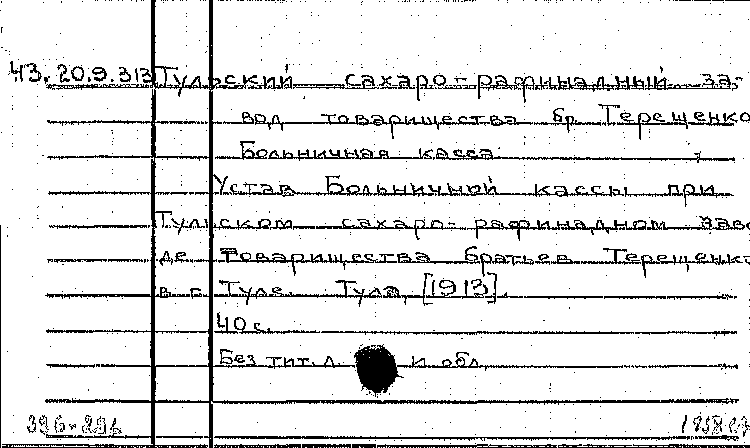 43.20.9.313 Тульский сахаро-рафинадный за-
вод товарищества бр. Терещенко
Больничная касса
Устав Больничной кассы при
Тульском сахаро-рафинадном заво
де Товарищества братьев Терещенко
в г. Туле. Тула, [1913].
40 с.
Без тит. л. и обл.